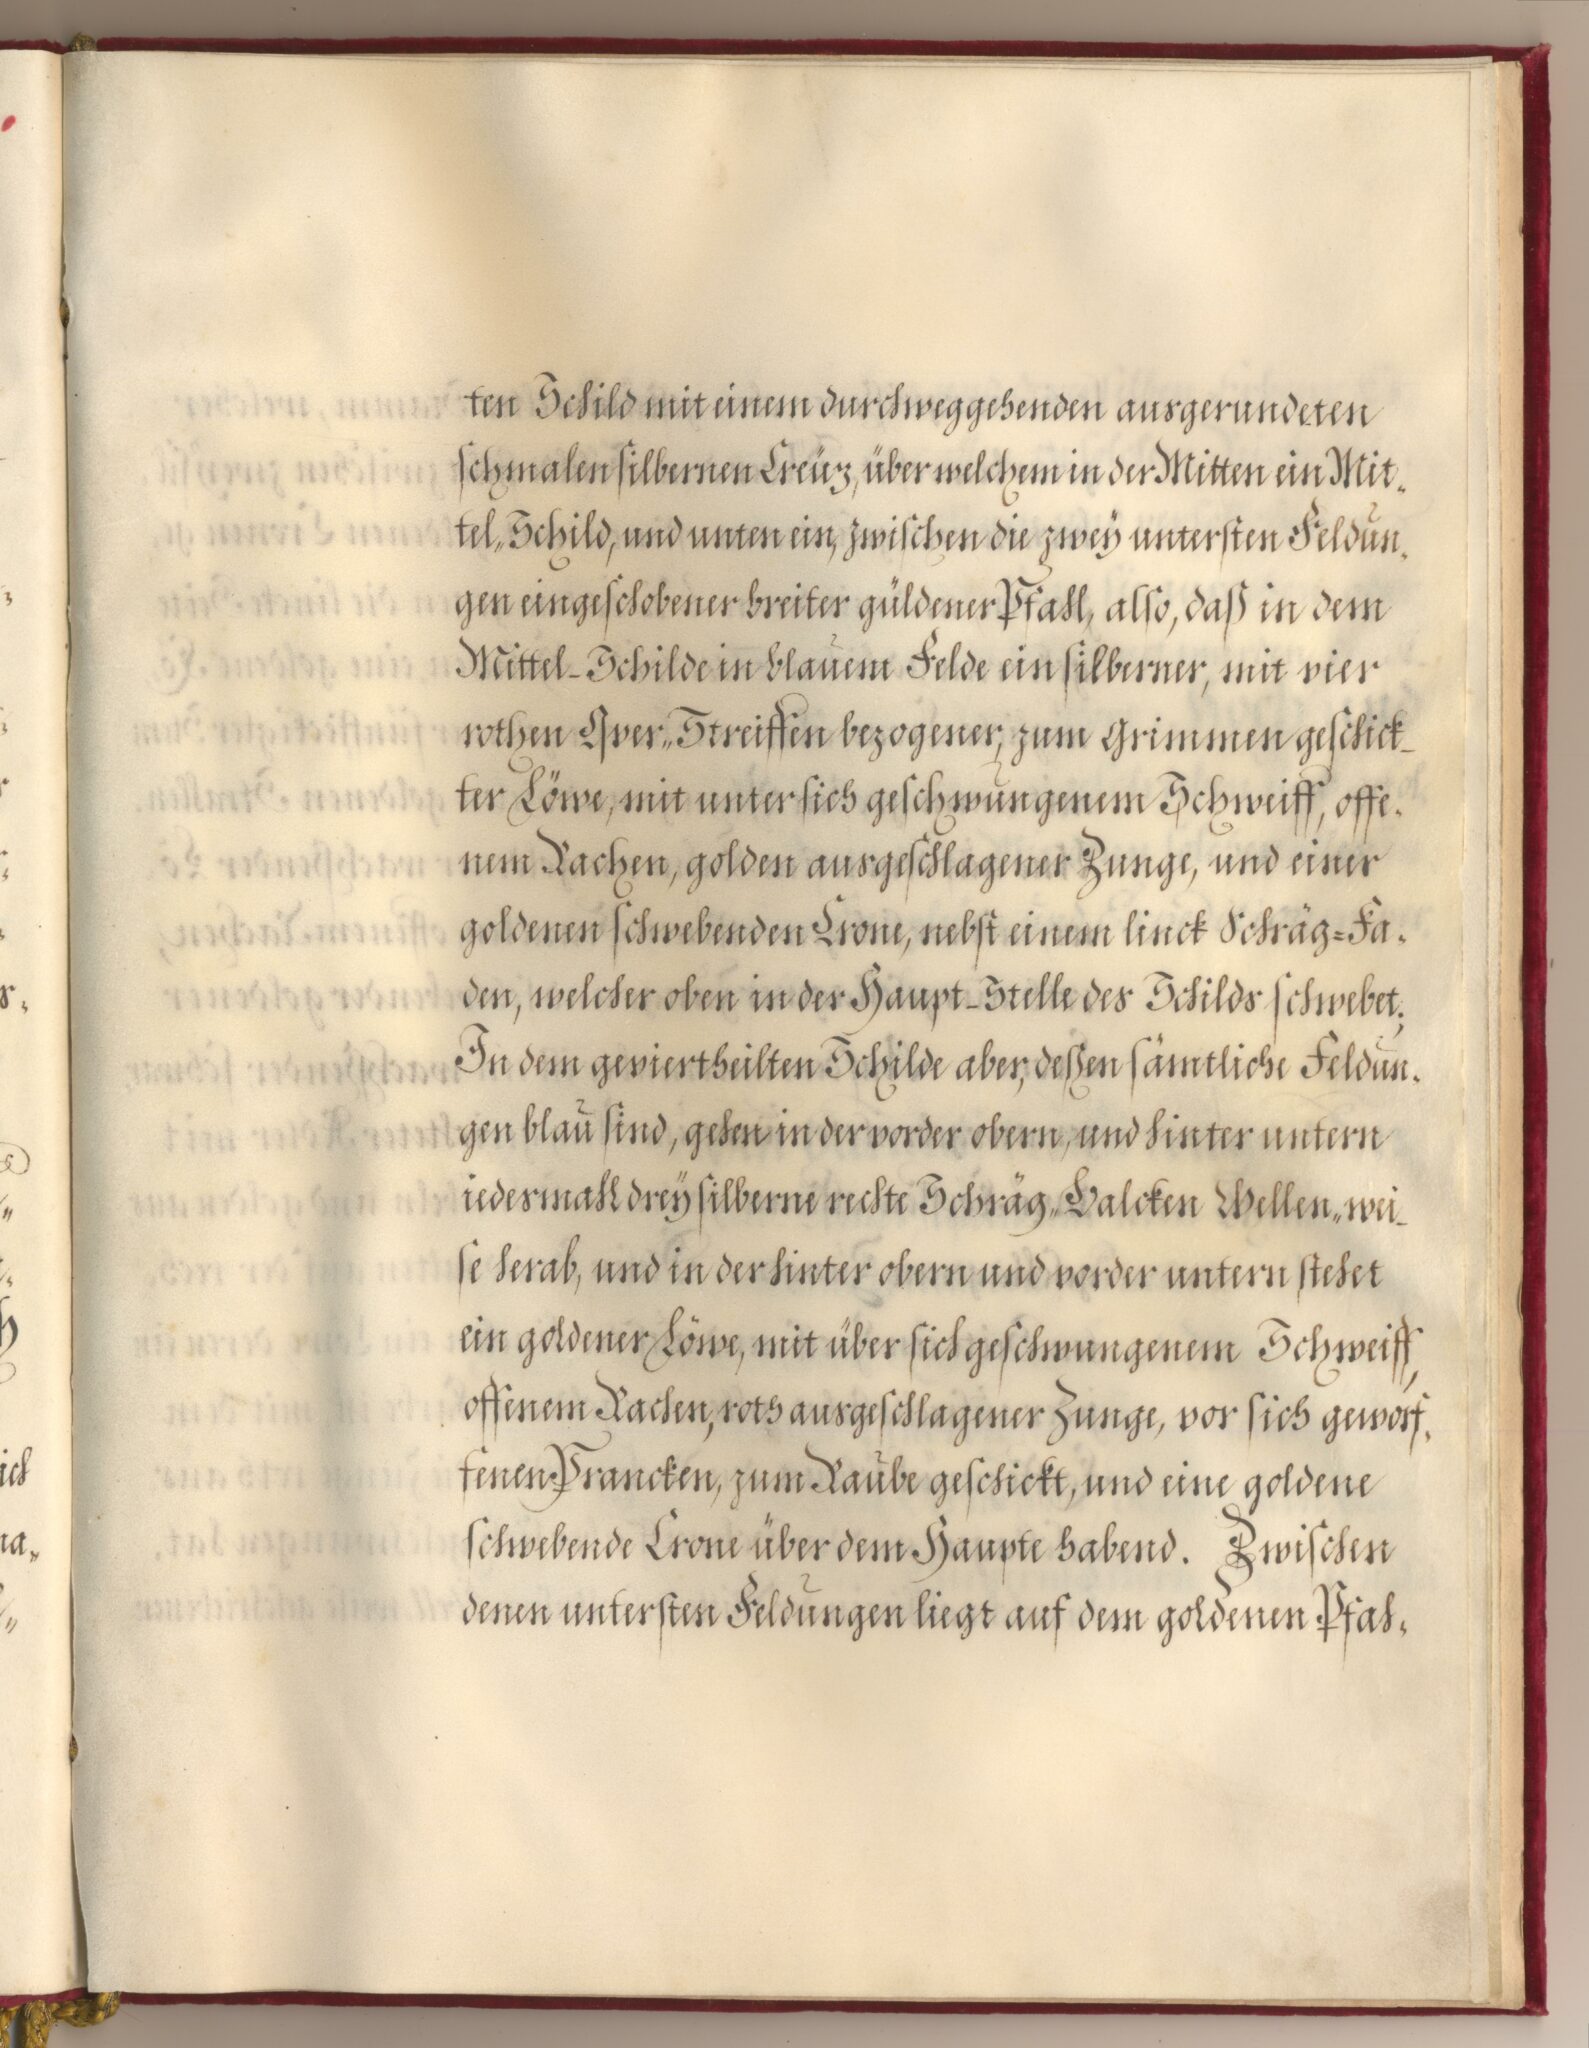 ten Schild mit einem durchweggehenden ausgerundeten
schmalen silbernen Creüz, über welchem in der Mitten ein Mit-
tel-Schild, und unten ein, zwischen die zwey untersten Feldun-
gen eingeschobener breiter güldener Pfahl, also, daß in dem
Mittel-Schilde in blauem Felde ein silberner, mit vier
rothen Qver-Streiffen bezogener, zum Grimmen geschick-
ter Löwe, mit unter sich geschwungenem Schweiff, offe-
nem Rachen, golden ausgeschlagener Zunge, und einer
goldenen schwebenden Crone, nebst einem linck Schräg-Fa-
den, welcher oben in der Haupt-Stelle des Schilds schwebet;
In dem geviertheilten Schilde aber, deßen sämtliche Feldun-
gen blau sind, gehen in der vorder obern, und hinter untern
iedesmahl drey silberne rechte Schräg-Balcken Wellen-wei-
se herab, und in der hinter obern und vorder untern stehet
ein goldener Löwe, mit über sich geschwungenem Schweiff,
offenem Rachen, roth ausgeschlagener Zunge, vor sich geworf-
fenen Prancken, zum Raube geschickt, und eine goldene
schwebende Crone über dem Haupte habend. Zwischen
denen untersten Feldungen liegt auf dem goldenen Pfah-